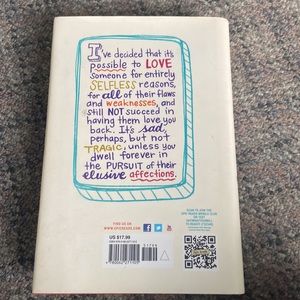 I've decided that it's
possible to LOVE
someone for entirely
SELFLESS reasons,
for all of their flaws
and weaknesses, and
still NOT succeed in
having them love you
back. It's sad,
perhaps, but not
TRAGIC, unless you
dwell forever in
the PURSUIT of their
elusive affections.
FIND US ON
US $17.99